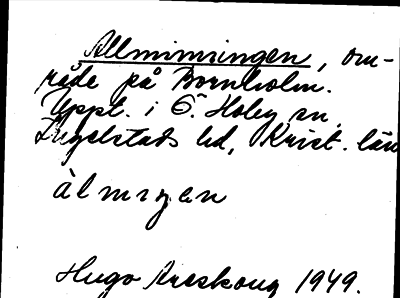 Allmimingen, om-
råde på Bornholm.
Uppt. i Ö. Hoby sn.
Ingelstads hd, Krist. län
àlmiŋen
Hugo Areskoug 1949.